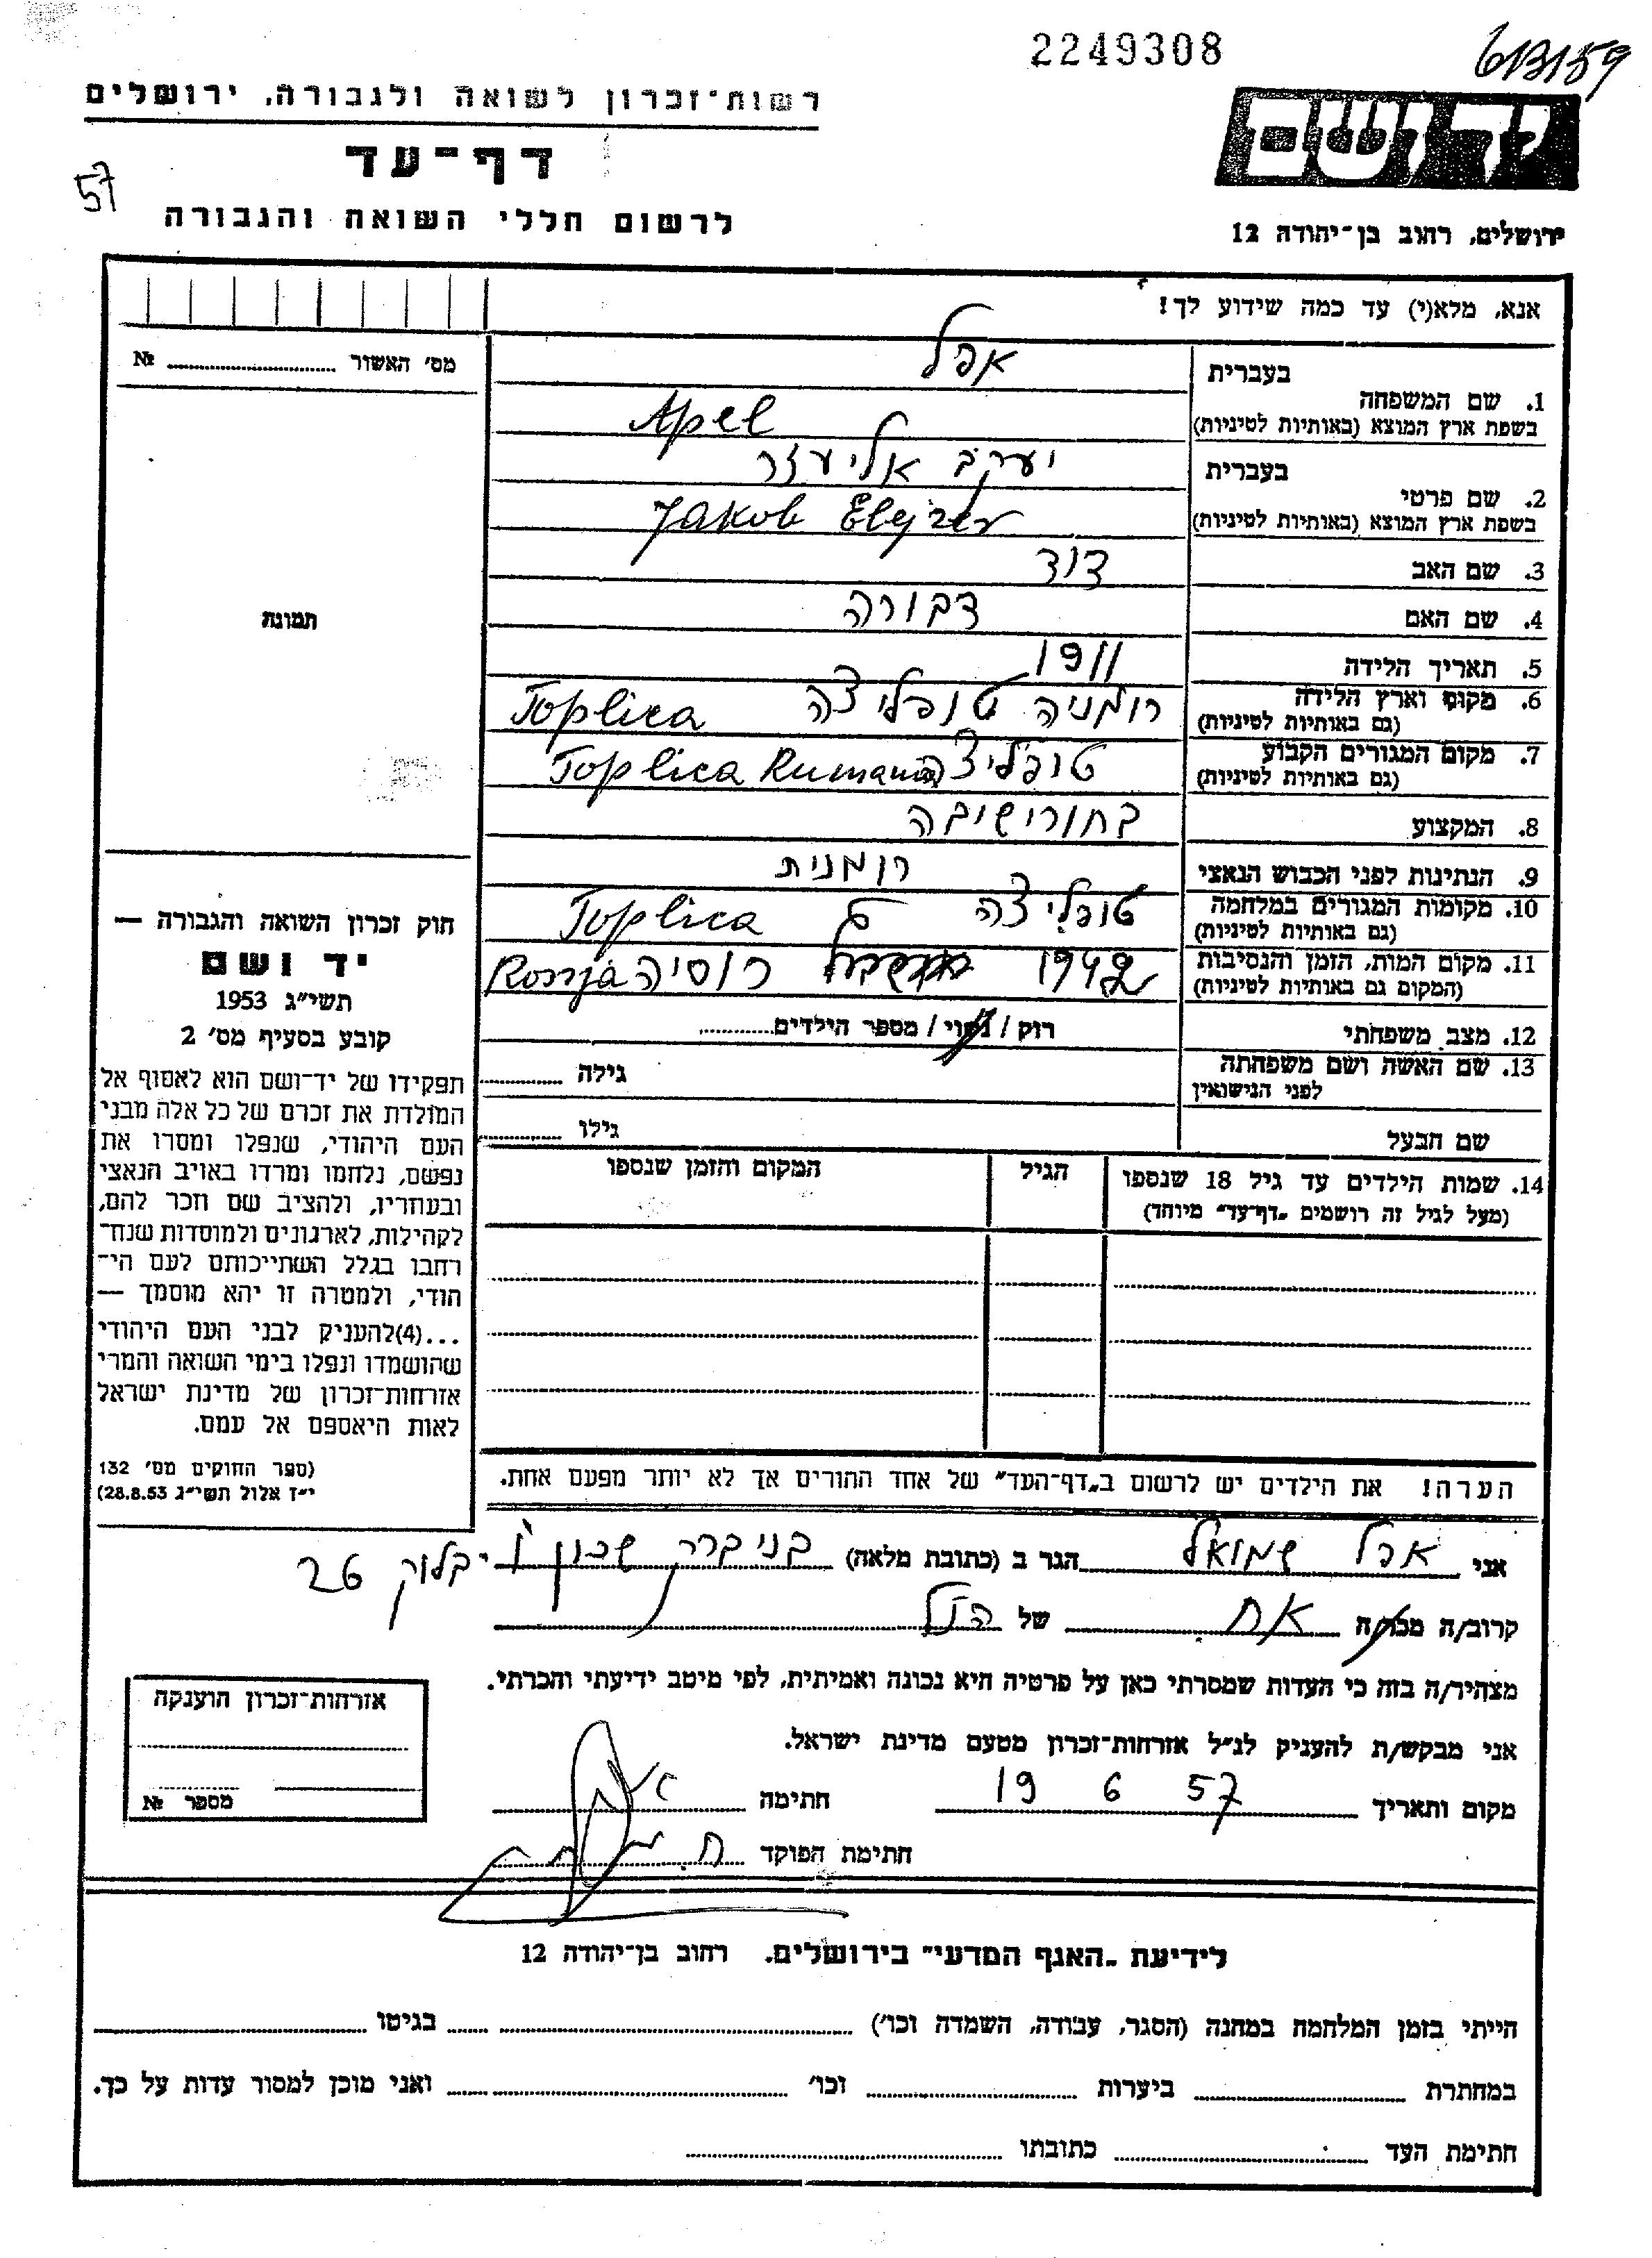 2249308
613159
רשות־זכרון לשואה ולגבורה, ירושלים
יד ושם
דף־עד
57
לרשום חללי השואה והגבורה
ירושלים, רחוב בן־יהודה 12
אנא, מלא(י) עד כמה שידוע לך!
מס׳ האשור № 
תמונה
בעברית אפל
1. שם המשפחה
בשפת ארץ המוצא (באותיות לטיניות) Apel
בעברית יעקב אליעזר
2. שם פרטי
בשפת ארץ המוצא (באותיות לטיניות) Jakob Elejzer
3. שם האב דוד
4. שם האם דבורה
5. תאריך הלידה 1911
6. מקום וארץ הלידה רומניה טופליצה Toplica
(גם באותיות לטיניות)
7. מקום המגורים הקבוע טופליצה Toplica Rumania
(גם באותיות לטיניות)
8. המקצוע בחור ישיבה
9. הנתינות לפני הכבוש הנאצי רומנית
10. מקומות המגורים במלחמה טופליצה Toplica
(גם באותיות לטיניות)
11. מקום המות, הזמן והנסיבות 1942 רוסיה Rosja
(המקום גם באותיות לטיניות)
12. מצב משפחתי רוק / נשוי / מספר הילדים
13. שם האשה ושם משפחתה גילה
לפני הנישואין
שם הבעל גילו
14. שמות הילדים עד גיל 18 שנספו הגיל המקום והזמן שנספו
(מעל לגיל זה רושמים „דף־עד״ מיוחד)
חוק זכרון השואה והגבורה —
יד ושם
תשי״ג 1953
קובע בסעיף מס׳ 2
תפקידו של יד־ושם הוא לאסוף אל
המולדת את זכרם של כל אלה מבני
העם היהודי, שנפלו ומסרו את
נפשם, נלחמו ומרדו באויב הנאצי
ובעוזריו, ולהציב שם וזכר להם,
לקהילות, לארגונים ולמוסדות שנח־
רבו בגלל השתייכותם לעם הי־
הודי, ולמטרה זו יהא מוסמך —
...(4) להעניק לבני העם היהודי
שהושמדו ונפלו בימי השואה והמרי
אזרחות־זכרון של מדינת ישראל
לאות היאספם אל עמם.
(ספר החוקים מס׳ 132
י״ז אלול תשי״ג 28.8.53)
הערה! את הילדים יש לרשום ב„דף־העד״ של אחד ההורים אך לא יותר מפעם אחת.
אני אפל שמואל הגר ב (כתובת מלאה) בני ברק שכון ו׳ בלוק 26
קרוב/ה מכר/ה אח של הנ״ל
מצהיר/ה בזה כי העדות שמסרתי כאן על פרטיה היא נכונה ואמיתית, לפי מיטב ידיעתי והכרתי.
אני מבקש/ת להעניק לנ״ל אזרחות־זכרון מטעם מדינת ישראל.
מקום ותאריך 19 6 57 חתימה
חתימת הפוקד
אזרחות־זכרון הוענקה
מספר №
לידיעת „האגף המדעי״ בירושלים. רחוב בן־יהודה 12
הייתי בזמן המלחמה במחנה (הסגר, עבודה, השמדה וכו׳) בגיטו
במחתרת ביערות וכו׳ ואני מוכן למסור עדות על כך.
חתימת העד כתובתו